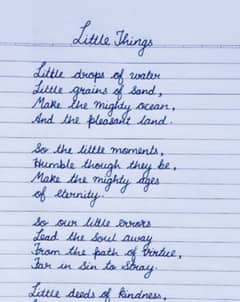 Little Things
Little drops of water
Little grains of sand,
Make the mighty ocean,
And the pleasant land.
So the little moments,
Humble though they be,
Make the mighty ages
of eternity.
So our little errors
Lead the soul away
From the path of virtue,
Far in sin to stray.
Little deeds of kindness,